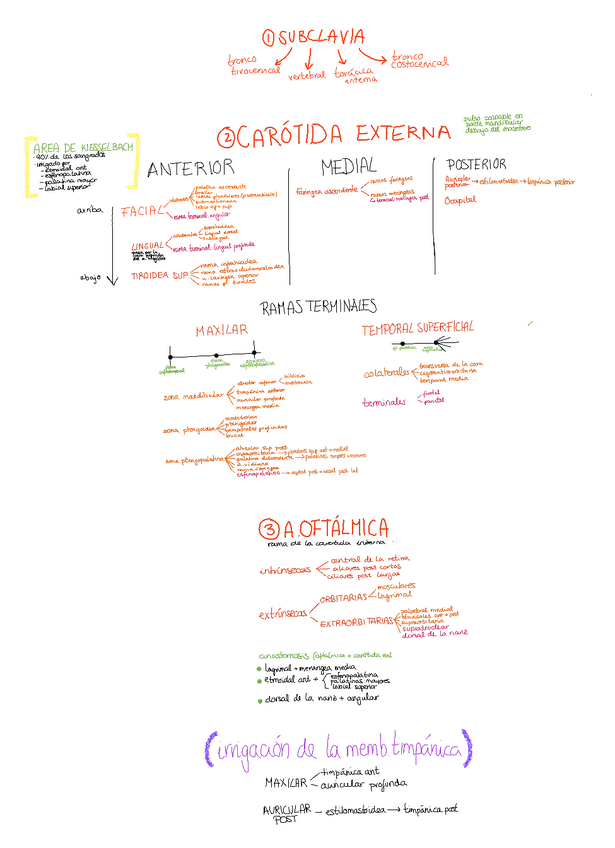 ① SUBCLAVIA
tronco
tirocervical
vertebral
torácica
interna
tronco
costocervical
② CARÓTIDA EXTERNA
pulso palpable en
borde mandibular
debajo del masetero
AREA DE KIESSELBACH
- 90% de los sangrados
- irrigado por
- etmoidal ant
- esfenopalatina
- palatina mayor
- labial superior
ANTERIOR
MEDIAL
POSTERIOR
arriba
abajo
FACIAL
palatina ascendente
submentoniana
labio inf + sup
rama terminal: angular
LINGUAL
colaterales
suprahioidea
lingual dorsal
sublingual
rama terminal: lingual profunda
TIROIDEA SUP
rama infrahioidea
rama esternocleidomastoidea
a. laringea superior
Faringea ascendente
ramas faringeas
ramas meningeas
terminal: meningea post
Auricular
posterior
estilomastoidea → timpánica posterior
Occipital
RAMAS TERMINALES
MAXILAR
TEMPORAL SUPERFICIAL
zona mandibular
alveolar inferior
milohioidea
mentoniana
timpánica anterior
auricular profunda
meningea media
zona pterigoidea
maseterina
pterigoidea
temporales profundas
bucal
zona pterigopalatina
alveolar sup post
infraorbitaria → alveolar sup ant + medial
palatina descendente → palatinas mayores + menores
a. vidiana
esfenopalatina → septal post + nasal post lat
colaterales
transversa de la cara
cigomaticoorbitaria
temporal media
terminales
frontal
parietal
③ A. OFTÁLMICA
rama de la carotida interna
intrínsecas
central de la retina
ciliares post cortas
ciliares post largas
extrínsecas
ORBITARIAS
musculares
lagrimal
EXTRAORBITARIAS
palpebral medial
etmoidales ant + post
supraorbitaria
supratroclear
dorsal de la nariz
anastomosis (oftálmica + carótida ext
• lagrimal + meningea media
• etmoidal ant +
esfenopalatina
palatinas mayores
labial superior
• dorsal de la nariz + angular
(irrigación de la memb. timpánica)
MAXILAR
timpánica ant
auricular profunda
AURICULAR
POST
estilomastoidea → timpánica post